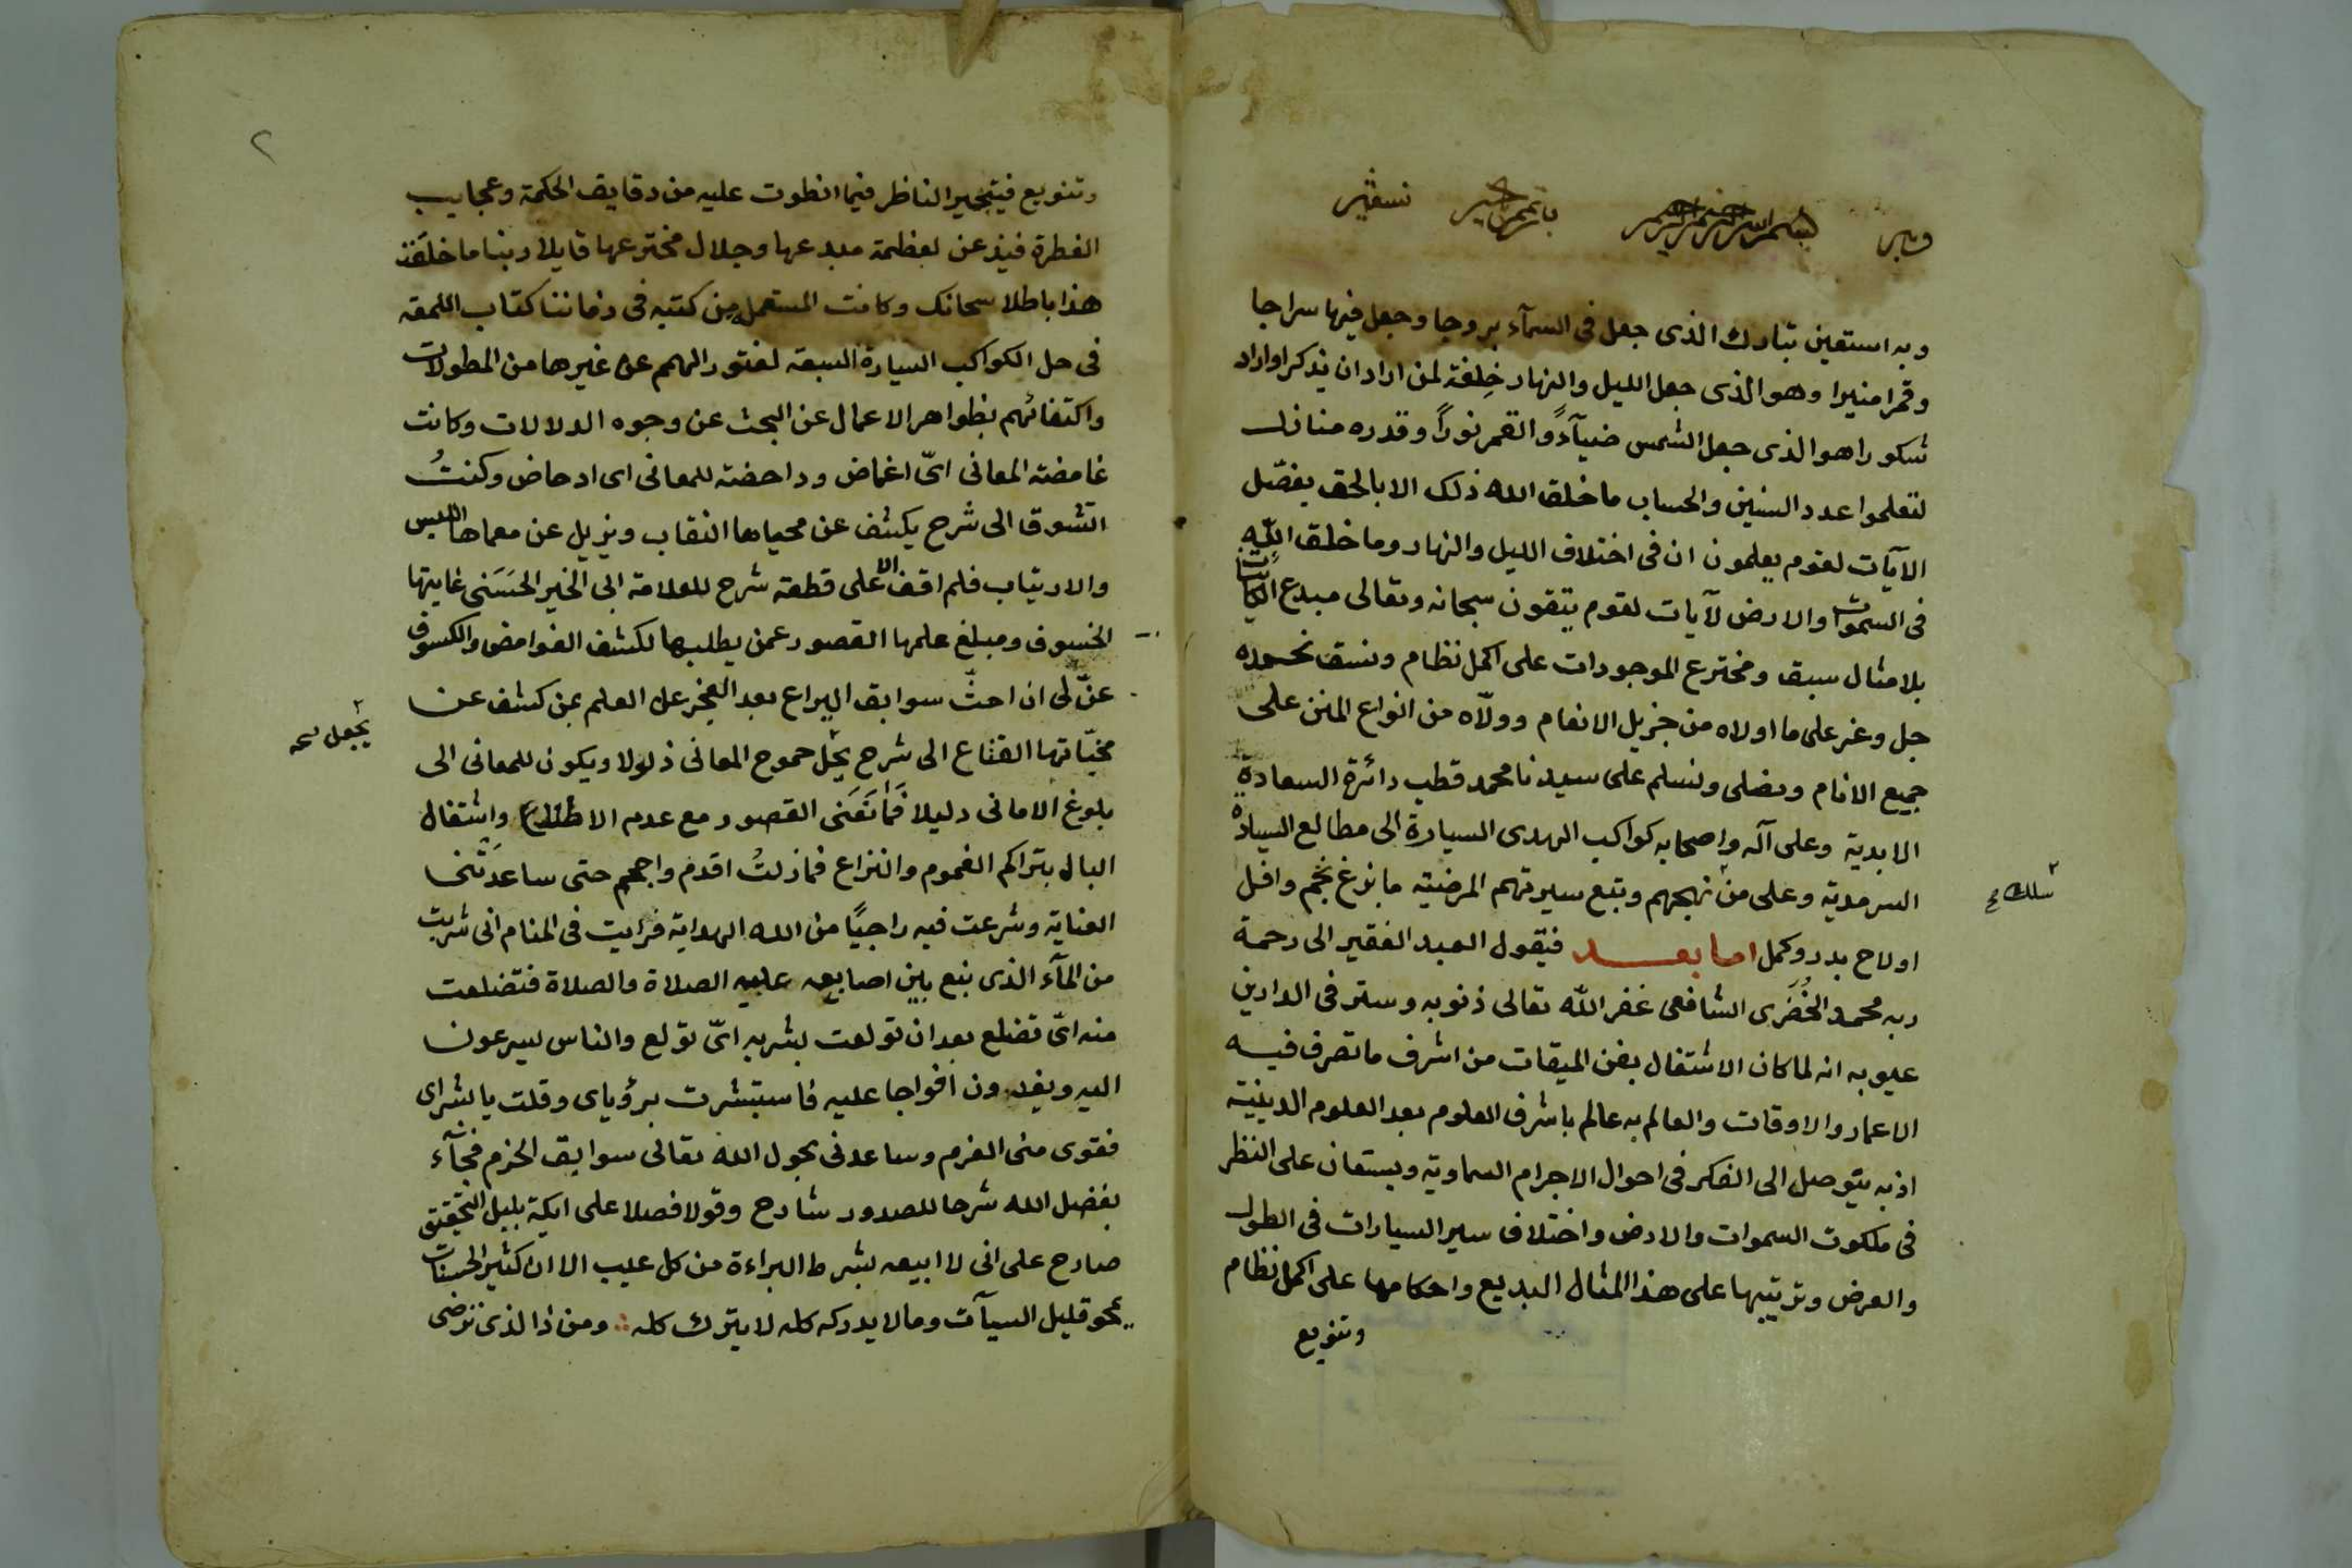 بسم الله الرحمن الرحيم نستعين
وبه استعين تبارك الذى جعل فى السمآء بروجا وجعل فيها سراجا
وقمرا منيرا وهو الذى جعل الليل والنهار خِلفة لمن اراد ان يذكر او اراد
شكورا هو الذى جعل الشمس ضيآءً والقمر نوراً وقدره منازل
لتعلموا عدد السنين والحساب ما خلق الله ذلك الا بالحق يفصّل
الآيات لقوم يعلمون ان فى اختلاف الليل والنهار وما خلق اللّه
فى السموات والارض لآيات لقوم يتقون سبحانه وتعالى مبدع الكائنات
بلا مثال سبق ومخترع الموجودات على اكمل نظام ونسق نحمده
جل وعز على ما اولاه من جزيل الانعام وولّاه من انواع المنن على
جميع الانام ونصلى ونسلم على سيدنا محمد قطب دائرة السعادة
الابدية وعلى آله واصحابه كواكب الهدى السيارة الى مطالع السيادة
السرمدية وعلى من نهجهم وتبع سيرتهم المرضية ما بزغ نجم وافل
سلك
او لاح بدر وكمل اما بعد فيقول العبد الفقير الى رحمة
ربه محمد الخُضَرى الشافعى غفر اللّه تعالى ذنوبه وستر فى الدارين
عيوبه انه لما كان الاشتغال بفن الميقات من اشرف ما تصرف فيه
الاعمار والاوقات والعالم به عالم باشرف العلوم بعد العلوم الدينية
اذ به يتوصل الى الفكر فى احوال الاجرام السماوية ويستعان على النظر
فى ملكوت السموات والارض واختلاف سير السيارات فى الطول
والعرض وترتيبها على هذا المثال البديع واحكامها على اكمل نظام
وتنويع
٢
وتنويع فيتحير الناظر فيما انطوت عليه من دقايق الحكمة وعجايب
الفطرة فيذعن لعظمة مبدعها وجلال مخترعها قايلا ربنا ما خلقت
هذا باطلا سبحانك وكانت المستعمل من كتبه فى زماننا كتاب اللمعة
فى حل الكواكب السيارة السبعة لفتور الهمم عن غيرها من المطولات
واكتفائهم بظواهر الاعمال عن البحث عن وجوه الدلالات وكانت
غامضة المعانى اىّ اغماض وداحضة للمعانى اى ادحاض وكنتُ
اتشوق الى شرح يكشف عن محياها النقاب ويزيل عن معماها اللبس
والارتياب فلم اقف الا على قطعة شرح للعلامة ابى الخير الحَسَنى غايتها
الخسوف ومبلغ علمها القصور عمن يطلبها لكشف الغوامض والكسوف
عنّ لى ان احثّ سوابق اليراع بعد العجز على العلم بمن كشف عن
مخبّآتها القناع الى شرح يحّل جموح المعانى ذلولا ويكون للمعانى الى
يجعل
بلوغ الامانى دليلا فمانعَنى القصور مع عدم الاطلاع واشتغال
البال بتراكم الغموم والنزاع فما زلتُ اقدم واحجم حتى ساعدَتنى
العناية وشرعت فيه راجيًا من الله الهداية فرايت فى المنام انى شربت
من المآء الذى نبع بين اصابعه عليه الصلاة والصلاة فتضلعت
منه اىّ تضلع بعد ان تولعت بشربه اىّ تولع والناس يسرعون
اليه ويفدون افواجا عليه فاستبشرت برؤياى وقلت يا بشراى
فقوى منى العزم وساعدنى بحول الله تعالى سوابق الحزم فجآء
بفضل الله شرحا للصدور شارح وقولا فصلا على ايكة بلبل التحقيق
صادح على انى لا ابيعه بشرط البراءة من كل عيب الا ان كثير الحسنات
يمحو قليل السيآت وما لا يدرك كله لا يترك كله ∴ ومن ذا الذى ترضى